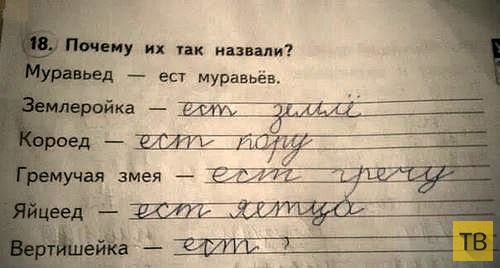 18. Почему их так назвали?
Муравьед — ест муравьёв.
Землеройка — ест землё
Короед — ест кору
Гремучая змея — ест гречу
Яйцеед — ест яетца
Вертишейка — ест ?
ТВ